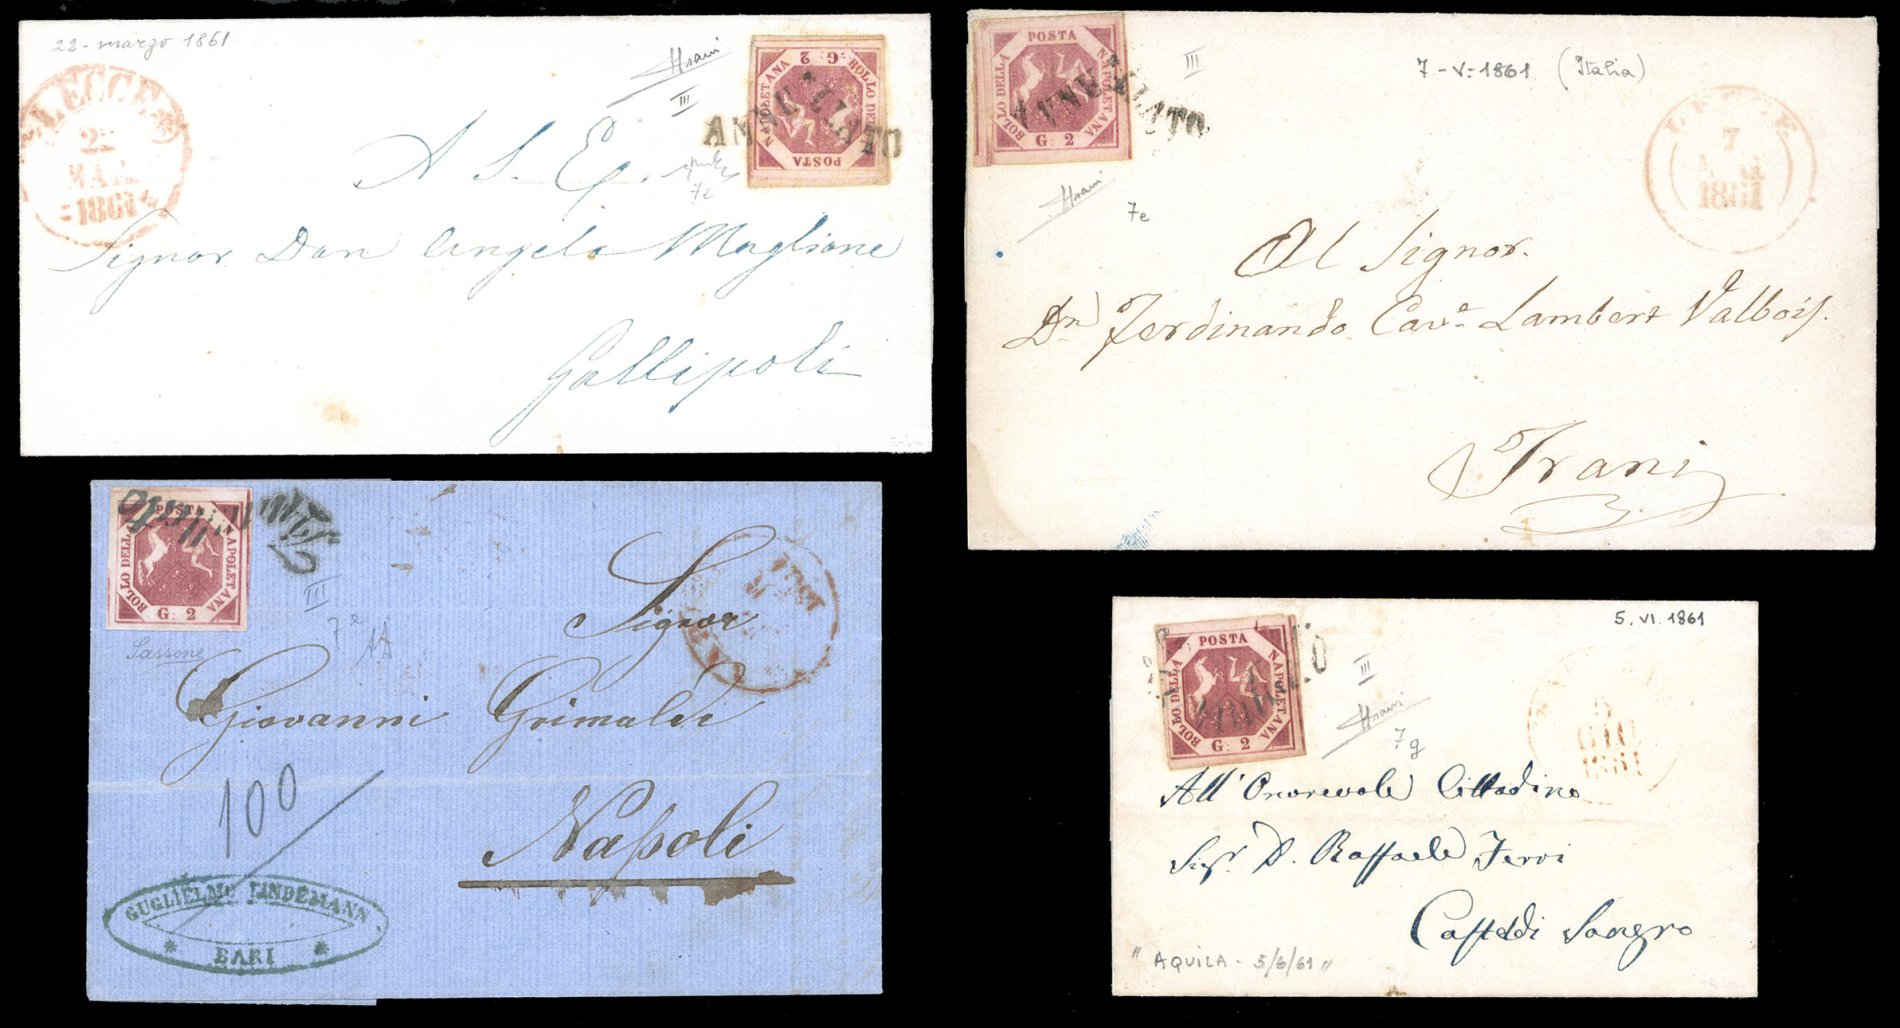 22 - marzo 1861
LECCE
22
MAR
1861
III
7e
POSTA
NAPOLETANA
G: 2
BOLLO DELLA
ANNULLATO
A S. E.
Signor Don Angelo Maglione
Gallipoli
POSTA
NAPOLETANA
G: 2
BOLLO DELLA
ANNULLATO
III
7e
7 - V - 1861 (Italia)
LECCE
7
1861
Al Signor
Dn Ferdinando Cave Lambert Valbois.
Trani
POSTA
NAPOLETANA
G: 2
BOLLO DELLA
Annullato
III
7e
Sassone
Signor
Giovanni Grimaldi
Napoli
100
GUGLIELMO LINDEMANN
BARI
POSTA
NAPOLETANA
G: 2
BOLLO DELLA
III
7g
5. VI. 1861
5
GIU
1861
All' Onorevole Cittadino
Sigr. D. Raffaele
Casteldi Sangro
"AQUILA - 5/6/61"